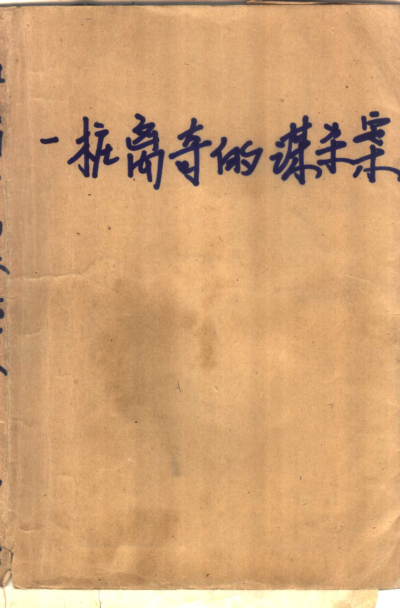 一桩离奇的谋杀案